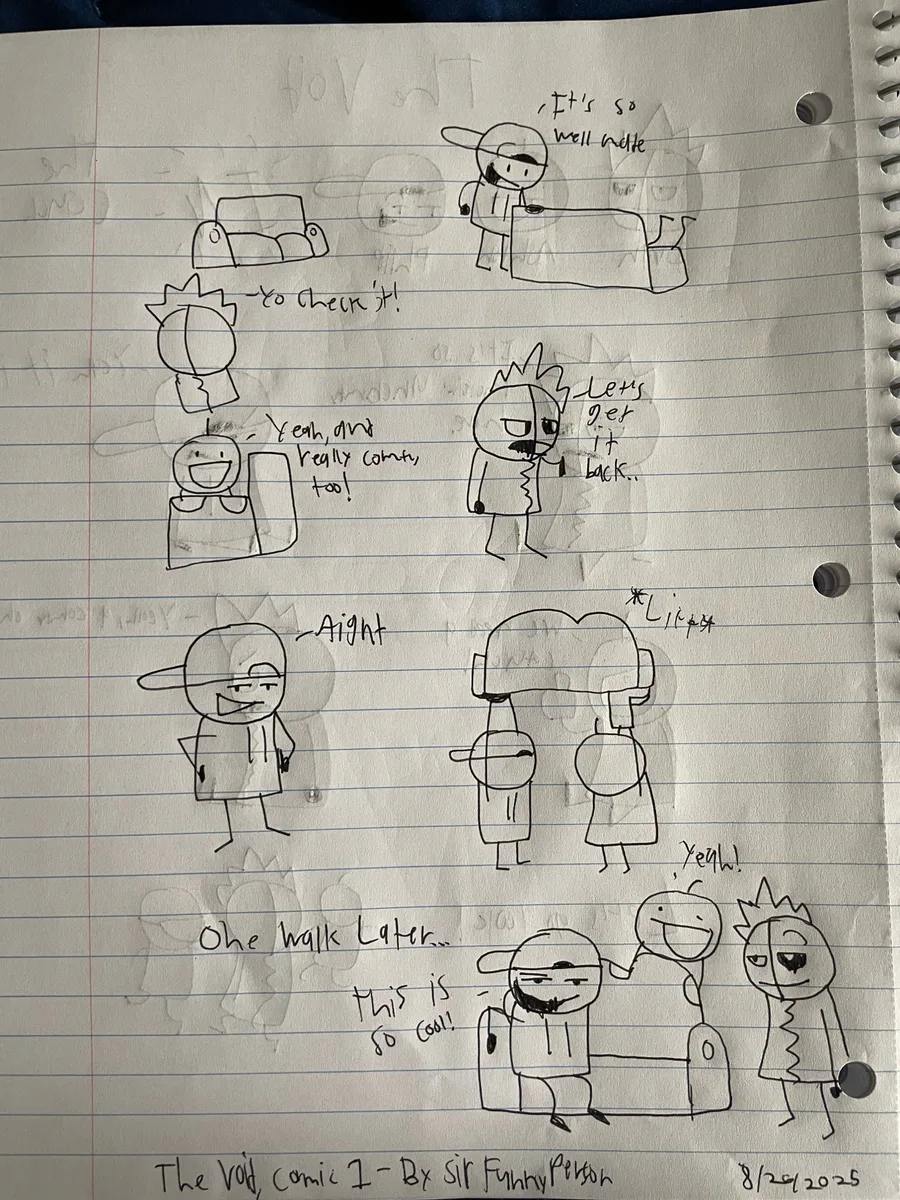 It's so
well made
-Yo check it!
-Yeah, and
really comfy,
too!
-Let's
get
it
back..
-Aight
*Lift*
One Walk Later...
This is -
so cool!
Yeah!
The Void, Comic 1 - By Sir Funny Person
8/20/2025